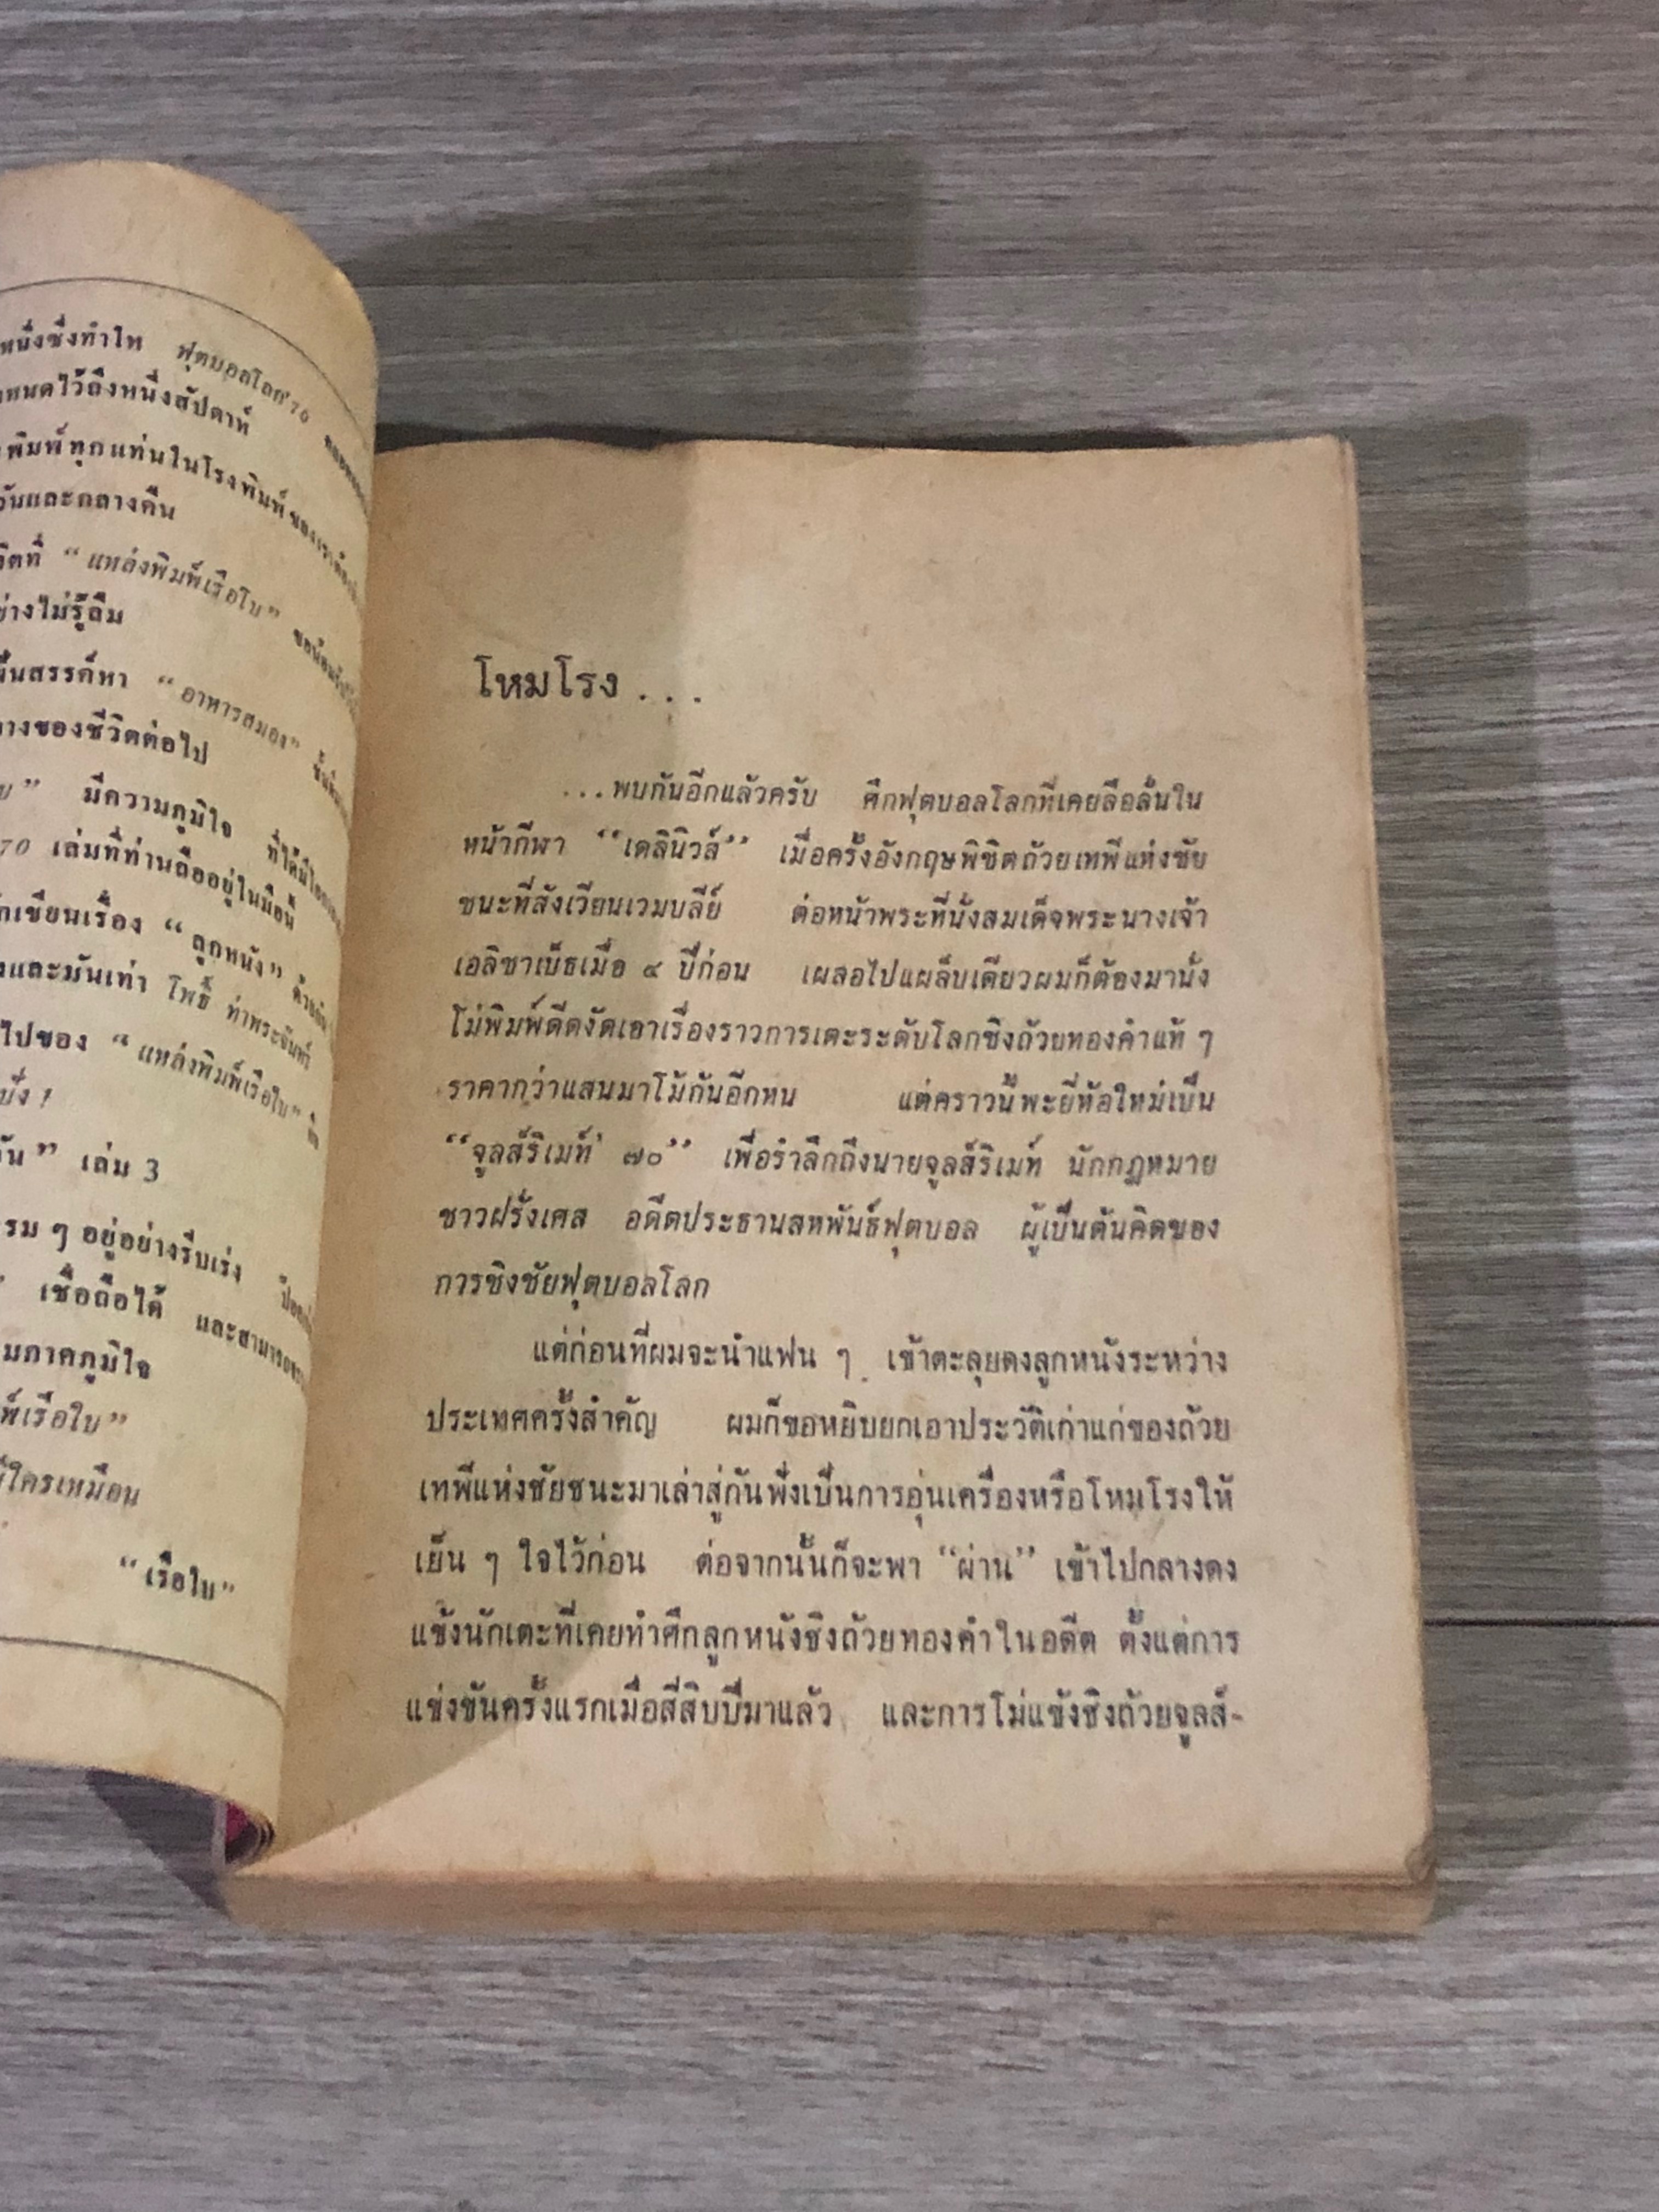 หนึ่งซึ่งทำให ฟุตบอลโลก'70
กำหนดไว้ถึงหนึ่งสัปดาห์
พิมพ์ทุกแท่นในโรงพิมพ์ของเรา
วันและกลางคืน
ที่ “แหล่งพิมพ์เรือใบ”
อย่างไม่รู้ลืม
สรรค์หา “อาหารสมอง”
ทางของชีวิตต่อไป
” มีความภูมิใจ ที่ได้มี
70 เล่มที่ท่านถืออยู่ในมือนี้
นักเขียนเรื่อง “ลูกหนัง”
และมันเท่า โพธิ์ ท่าพระจันทร์
ไปของ “แหล่งพิมพ์เรือใบ”
ปั๋ง !
” เล่ม 3
ๆ อยู่อย่างรีบเร่ง
เชื่อถือได้ และสามารถ
ภาคภูมิใจ
พิมพ์เรือใบ”
มีใครเหมือน
“เรือใบ”
โหมโรง . . .
...พบกันอีกแล้วครับ ศึกฟุตบอลโลกที่เคยลือลั่นใน
หน้ากีฬา “เดลินิวส์” เมื่อครั้งอังกฤษพิชิตถ้วยเทพีแห่งชัย
ชนะที่สังเวียนเวมบลีย์ ต่อหน้าพระที่นั่งสมเด็จพระนางเจ้า
เอลิซาเบ็ธเมื่อ ๔ ปีก่อน เผลอไปแผล็บเดียวผมก็ต้องมานั่ง
โม่พิมพ์ดีดงัดเอาเรื่องราวการเตะระดับโลกชิงถ้วยทองคำแท้ ๆ
ราคากว่าแสนมาโม้กันอีกหน แต่คราวนี้พะยี่ห้อใหม่เป็น
“จูลส์ริเมท์ ๗๐” เพื่อรำลึกถึงนายจูลส์ริเมท์ นักกฎหมาย
ชาวฝรั่งเศส อดีตประธานสหพันธ์ฟุตบอล ผู้เป็นต้นคิดของ
การชิงชัยฟุตบอลโลก
แต่ก่อนที่ผมจะนำแฟน ๆ เข้าตะลุยดงลูกหนังระหว่าง
ประเทศครั้งสำคัญ ผมก็ขอหยิบยกเอาประวัติเก่าแก่ของถ้วย
เทพีแห่งชัยชนะมาเล่าสู่กันฟังเป็นการอุ่นเครื่องหรือโหมโรงให้
เย็น ๆ ใจไว้ก่อน ต่อจากนั้นก็จะพา “ผ่าน” เข้าไปกลางดง
แข้งนักเตะที่เคยทำศึกลูกหนังชิงถ้วยทองคำในอดีต ตั้งแต่การ
แข่งขันครั้งแรกเมื่อสี่สิบปีมาแล้ว และการโม่แข้งชิงถ้วยจูลส์-